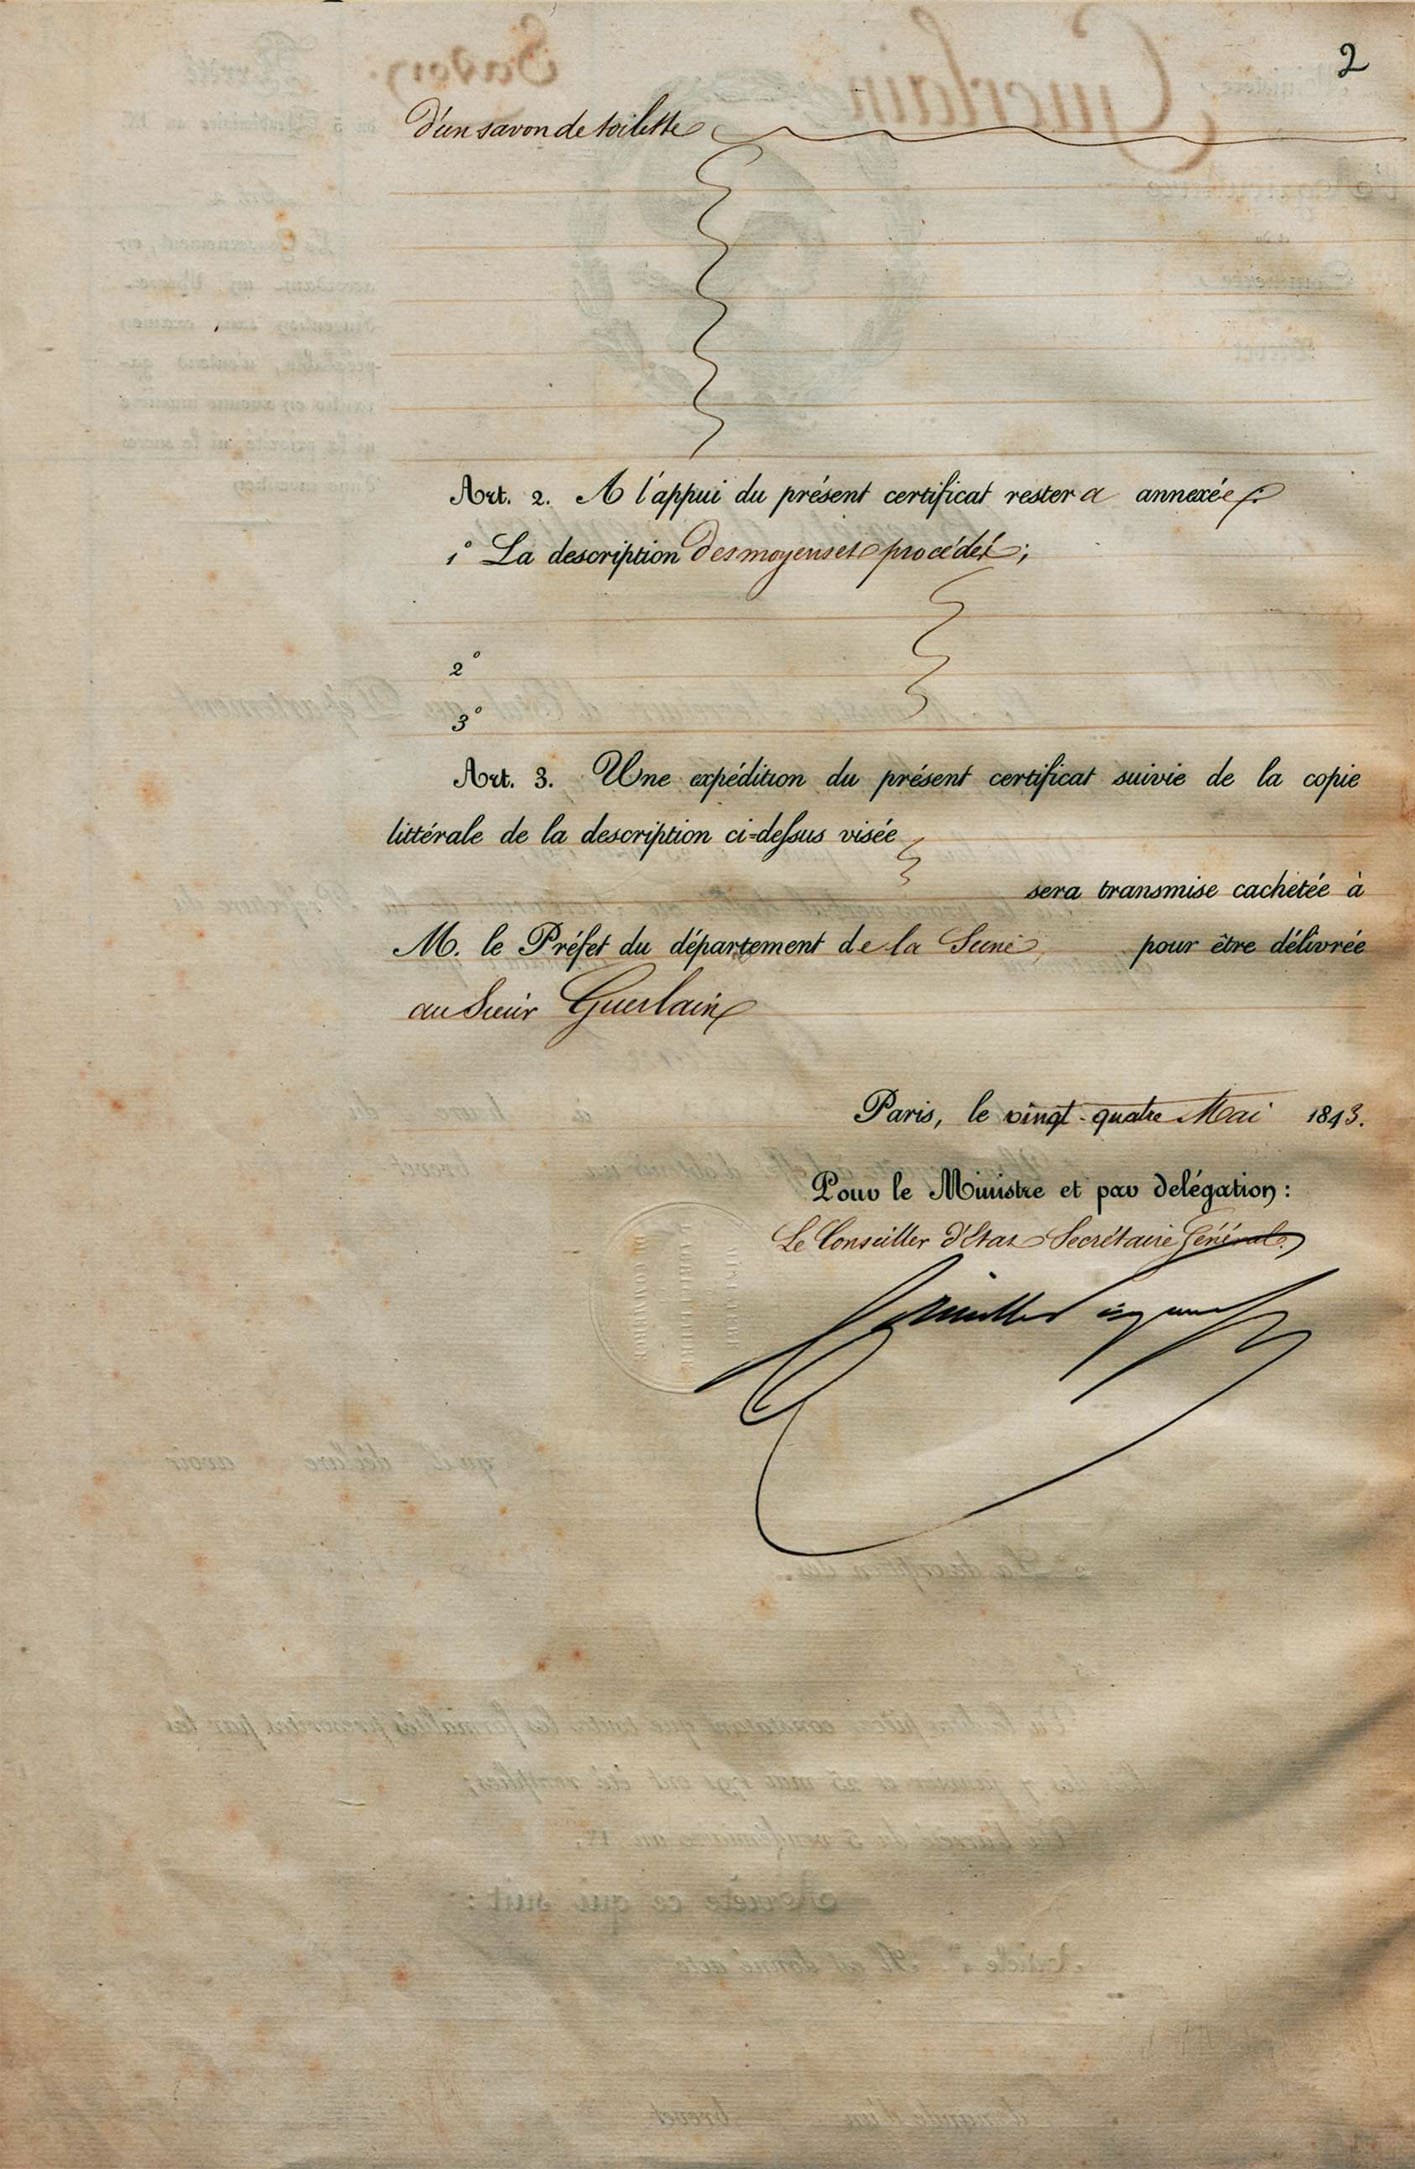 2
d'un savon de toilette
Art. 2. A l'appui du présent certificat restera annexée :
1° La description des moyens et procédés ;
2°
3°
Art. 3. Une expédition du présent certificat suivie de la copie
littérale de la description ci-dessus visée
sera transmise cachetée à
M. le Préfet du département de la Seine, pour être délivrée
au Sieur Guerlain
Paris, le vingt-quatre Mai 1843.
Pour le Ministre et par delégation :
Le Conseiller d'Etat Secrétaire Général,
L'AGRICULTURE
DU COMMERCE